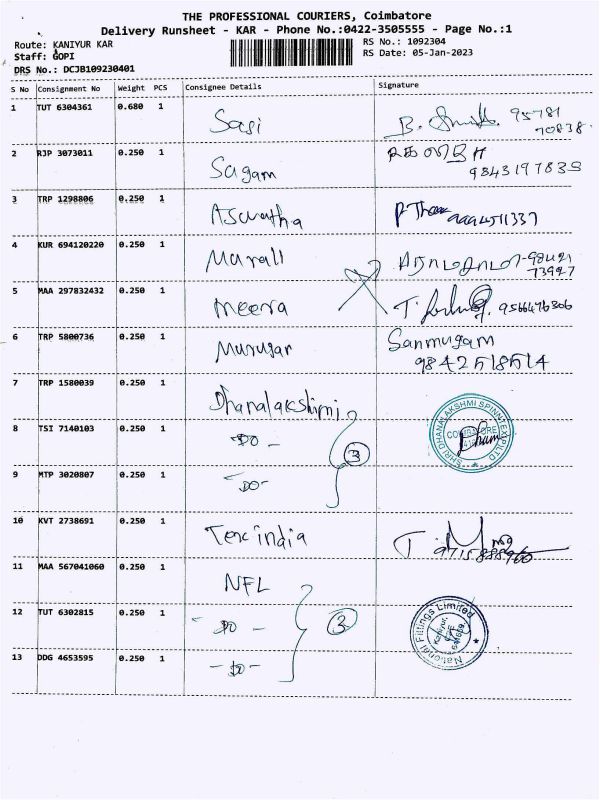 THE PROFESSIONAL COURIERS, Coimbatore
Delivery Runsheet - KAR - Phone No.:0422-3505555 - Page No.:1
Route: KANIYUR KAR
Staff: GOPI
DRS No.: DCJB109230401
RS No.: 1092304
RS Date: 05-Jan-2023
S No Consignment No Weight PCS Consignee Details Signature
1 TUT 6304361 0.680 1 Sasi 95781
70838
2 RJP 3073011 0.250 1 Sagam
9843197835
3 TRP 1298806 0.250 1 Aswatha 9994511337
4 KUR 694120220 0.250 1 Murali 98421
73927
5 MAA 297832432 0.250 1 Meera 9566476306
6 TRP 5800736 0.250 1 Murugar Sanmugam
9842518514
7 TRP 1580039 0.250 1 Dhanalakshimi
8 TSI 7140103 0.250 1 -DO- 3
SHRI DHANALAKSHMI SPINNTEX P LTD
COIMBATORE
9 MTP 3020807 0.250 1 -DO-
10 KVT 2738691 0.250 1 Texc india
11 MAA 567041060 0.250 1 NFL
12 TUT 6302815 0.250 1 -DO- 3
National Fittings Limited
Kaniyur,
13 DDG 4653595 0.250 1 -DO-